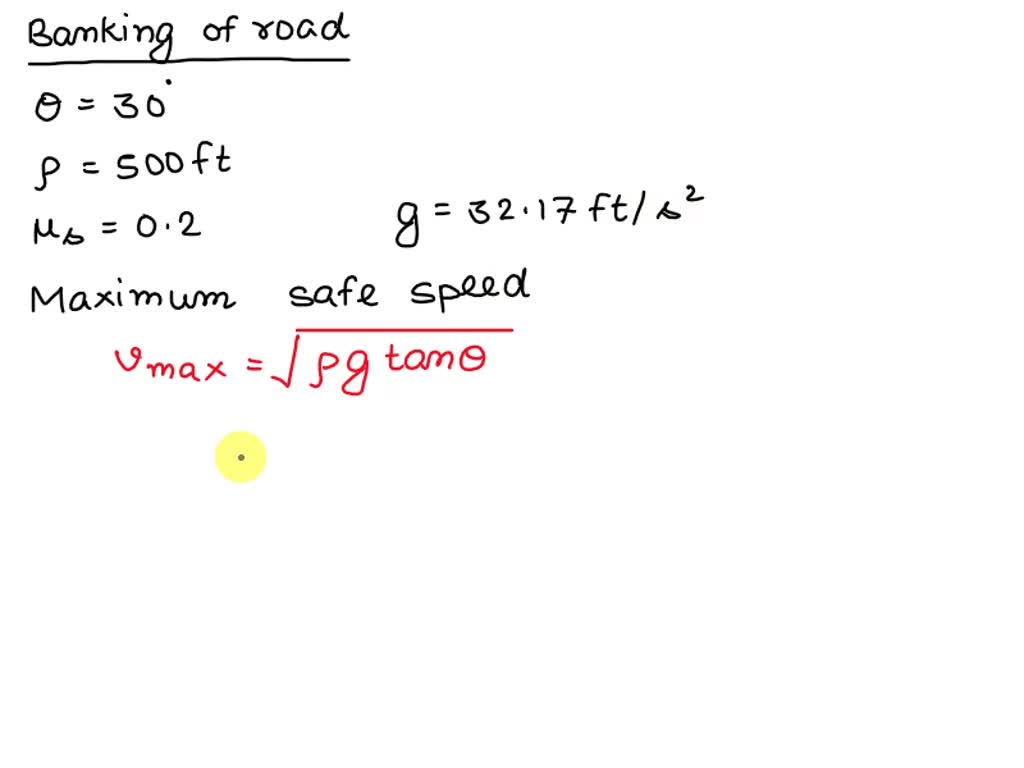 Banking of road
θ = 30°
ρ = 500 ft
μs = 0.2
g = 32.17 ft/s²
Maximum safe speed
vmax = √ρg tanθ